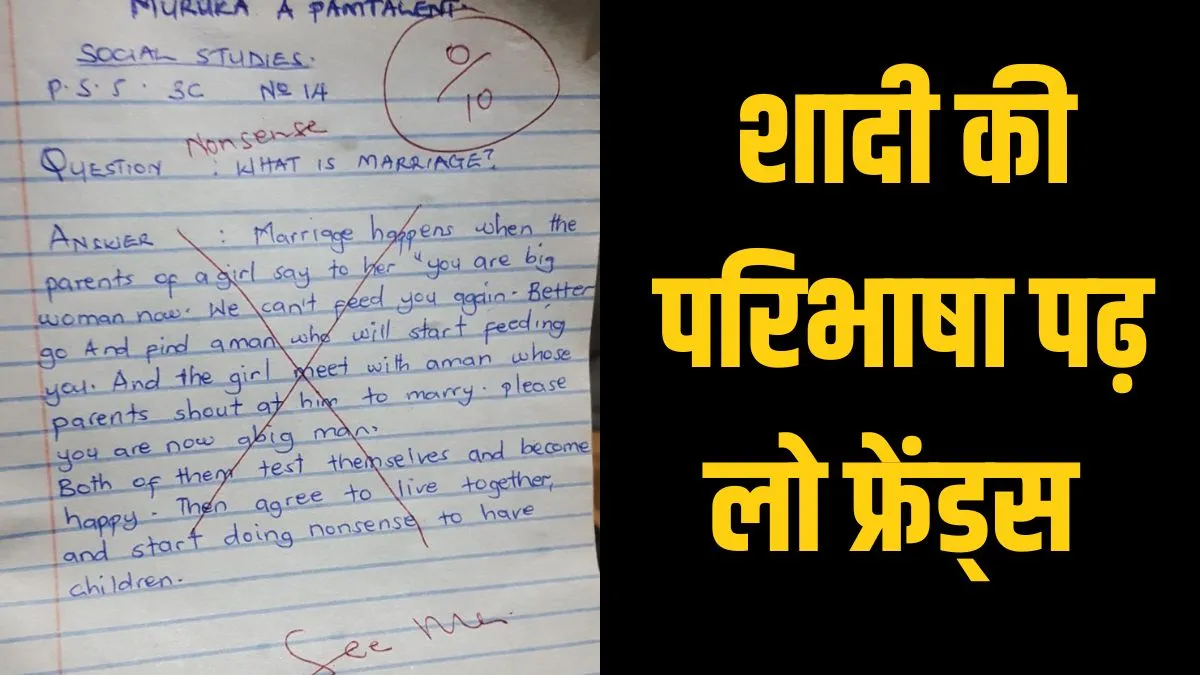 MURUKA A PAMTALENT.
SOCIAL STUDIES.
P.S.5. 3C No 14
0/10
Nonsense
QUESTION : WHAT IS MARRIAGE?
ANSWER : Marriage happens when the
parents of a girl say to her "you are big
woman now. We can't feed you again. Better
go And find aman who will start feeding
you. And the girl meet with aman whose
parents shout at him to marry. please
you are now abig man.
Both of them test themselves and become
happy. Then agree to live together,
and start doing nonsense to have
children.
See Me.
शादी की
परिभाषा पढ़
लो फ्रेंड्स